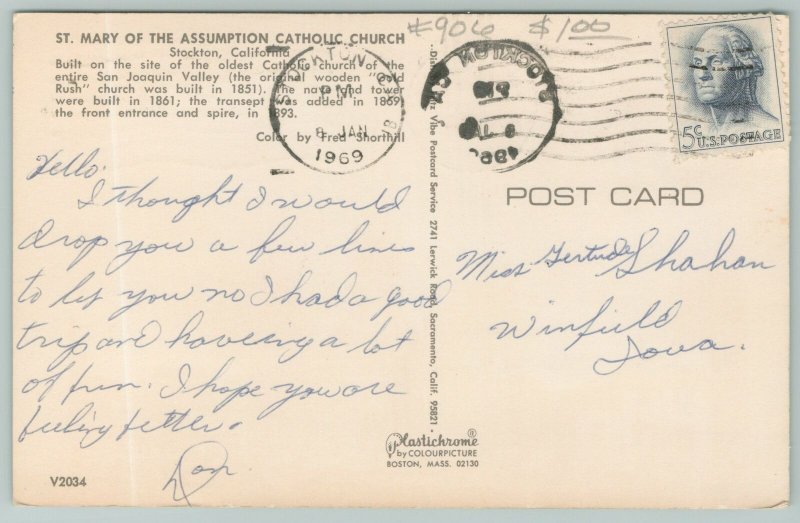 #906 $1.00
ST. MARY OF THE ASSUMPTION CATHOLIC CHURCH
Stockton, California
Built on the site of the oldest Catholic church of the
entire San Joaquin Valley (the original wooden "Gold
Rush" church was built in 1851). The nave and tower
were built in 1861; the transept was added in 1869;
the front entrance and spire, in 1893.
Color by Fred Shorthill
STOCKTON
PM
8 JAN
1969
5¢ U.S. POSTAGE
POST CARD
Hello.
I thought I would
drop you a few lines
to let you no I had a good
trip and haveing a lot
of fun. I hope you are
feeling better.
Don
Miss Gertrude Shahan
Winfield
Iowa.
Vibe Postcard Service 2741 Lerwick Road, Sacramento, Calif. 95821
Plastichrome
by COLOURPICTURE
BOSTON, MASS. 02130
V2034